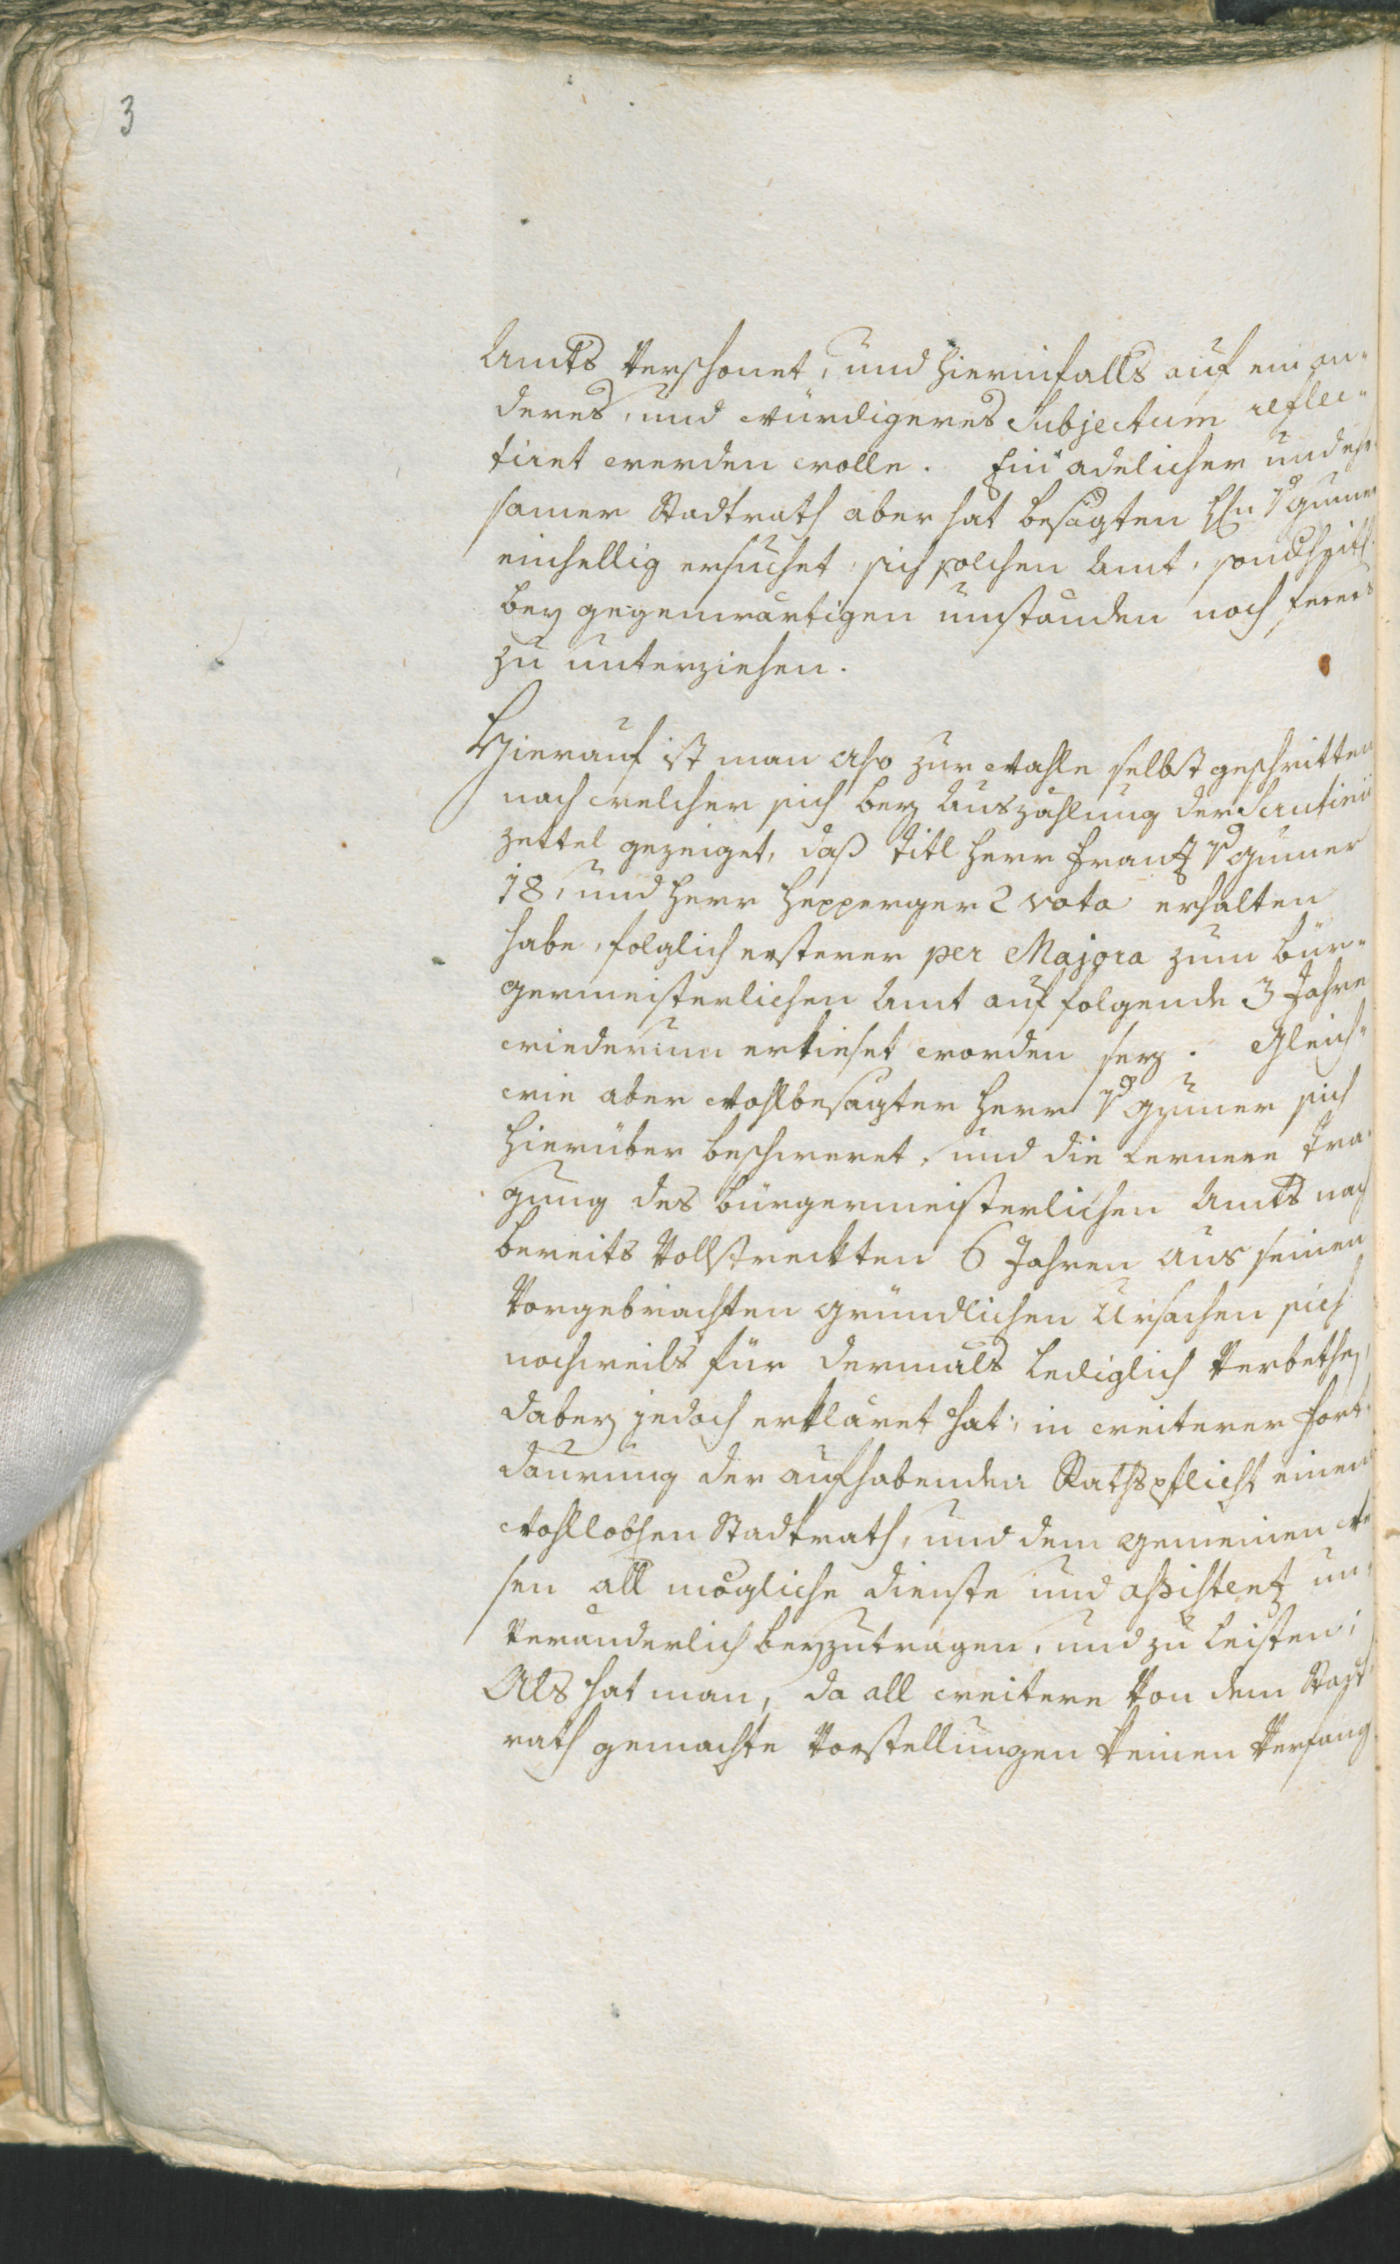 3
Amts verschonet, und hierinfalls auf ein an-
deres, und würdigeres Subjectum reflec-
tiret werden wolle. Ein adelicher und ehr-
samer Stadtrath aber hat besagten Hrn v Gumer
einhellig ersuchet, sich solchen Amt, sonderheitl.
bey gegenwärtigen umständen noch ferers
zu unterziehen.
Hierauf ist man also zur wahle selbst geschritten
nach welcher sich bey Auszählung der Scrutinii
zettel gezeiget, daß Titl Herr Frantz v Gumer
18, und Herr Hepperger 2 vota erhalten
habe, folglich ersterer per Majora zum bür-
germeisterlichen Amt auf folgende 3 Jahre
wiederum erkieset worden sey. Gleich-
wie aber wohlbesagter Herr v Gumer sich
hierüber beschweret, und die fernere Tra-
gung des bürgermeisterlichen Amts nach
bereits vollstreckten 6 Jahren aus seinen
vorgebrachten gründlichen Ursachen sich
nochweils für dermals lediglich verbethen,
dabey jedoch erkläret hat, in weiterer Fort-
daurung der aufhabenden Rathspflicht einem
wohlloblen Stadtrath, und dem gemeinen we
sen all mögliche dienste und assistentz un-
veränderlich beyzutragen, und zu leisten;
Als hat man, da all weitere von dem Stadt
rath gemachte vorstellungen keinen verfang